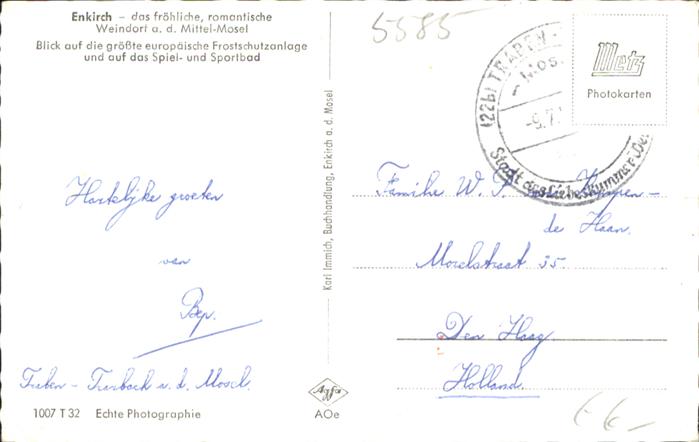 Enkirch – das fröhliche, romantische
Weindorf a. d. Mittel-Mosel
Blick auf die größte europäische Frostschutzanlage
und auf das Spiel- und Sportbad
5585
(22b) TRABEN-
Mos.
-9.7.
Stadt des Liebeskummer
Metz
Photokarten
Karl Immich, Buchhandlung, Enkirch a. d. Mosel
Hartelijke groeten
van
Bep.
Traben - Trarbach a. d. Mosel.
Familie W. P.
de Haan.
35.
Den Haag
Holland.
1007 T 32 Echte Photographie
Agfa
AOe